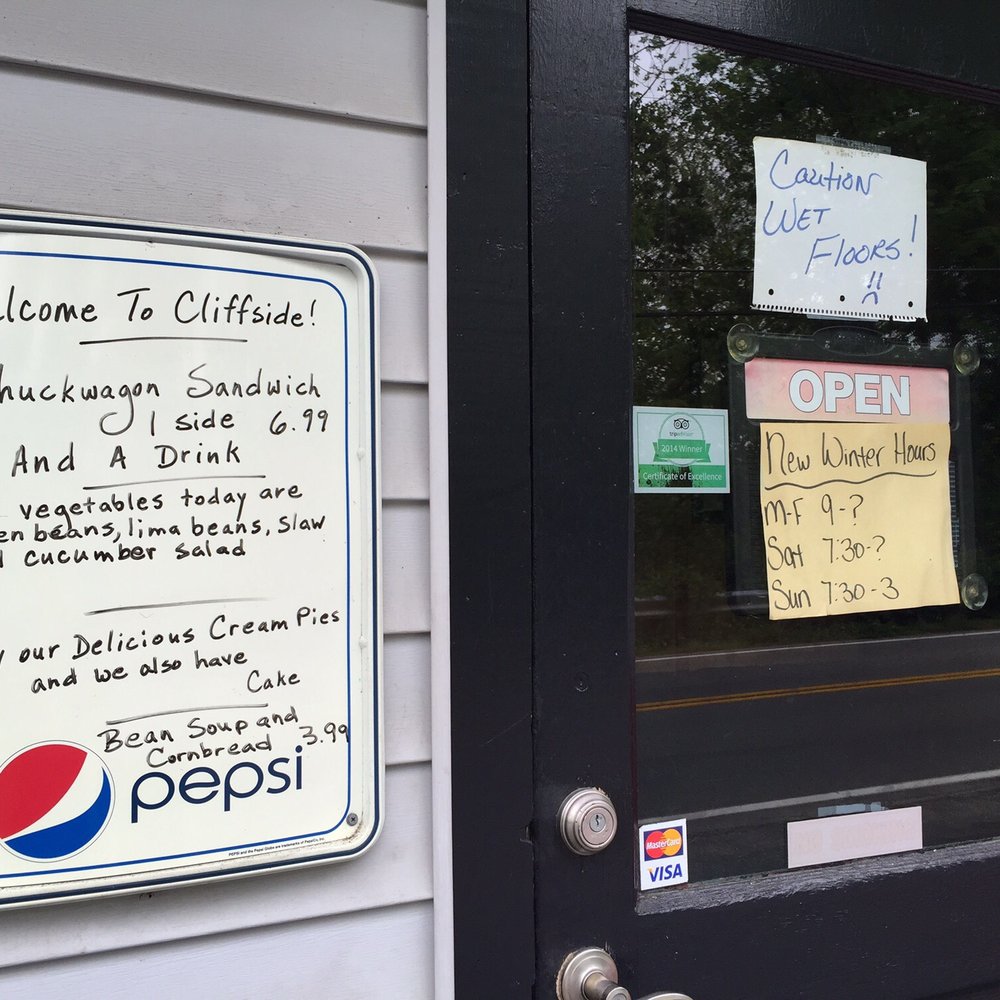 lcome To Cliffside!
huckwagon Sandwich
1 side 6.99
And A Drink
vegetables today are
en beans, lima beans, slaw
cucumber salad
our Delicious Cream Pies
and we also have
Cake
Bean Soup and
Cornbread 3.99
pepsi
PEPSI and the Pepsi Globe are trademarks of PepsiCo, Inc.
Caution
Wet
Floors!
!!
OPEN
tripadvisor
2014 Winner
Certificate of Excellence
New Winter Hours
M-F 9-?
Sat 7:30-?
Sun 7:30-3
MasterCard
VISA